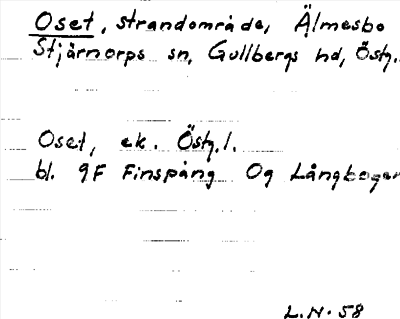 Oset, strandområde, Älmesbo
Stjärnorps sn, Gullbergs hd, Östg.
Oset, ek. Östg. l.
bl. 9F Finspång Og Långbogen
L.N. 58